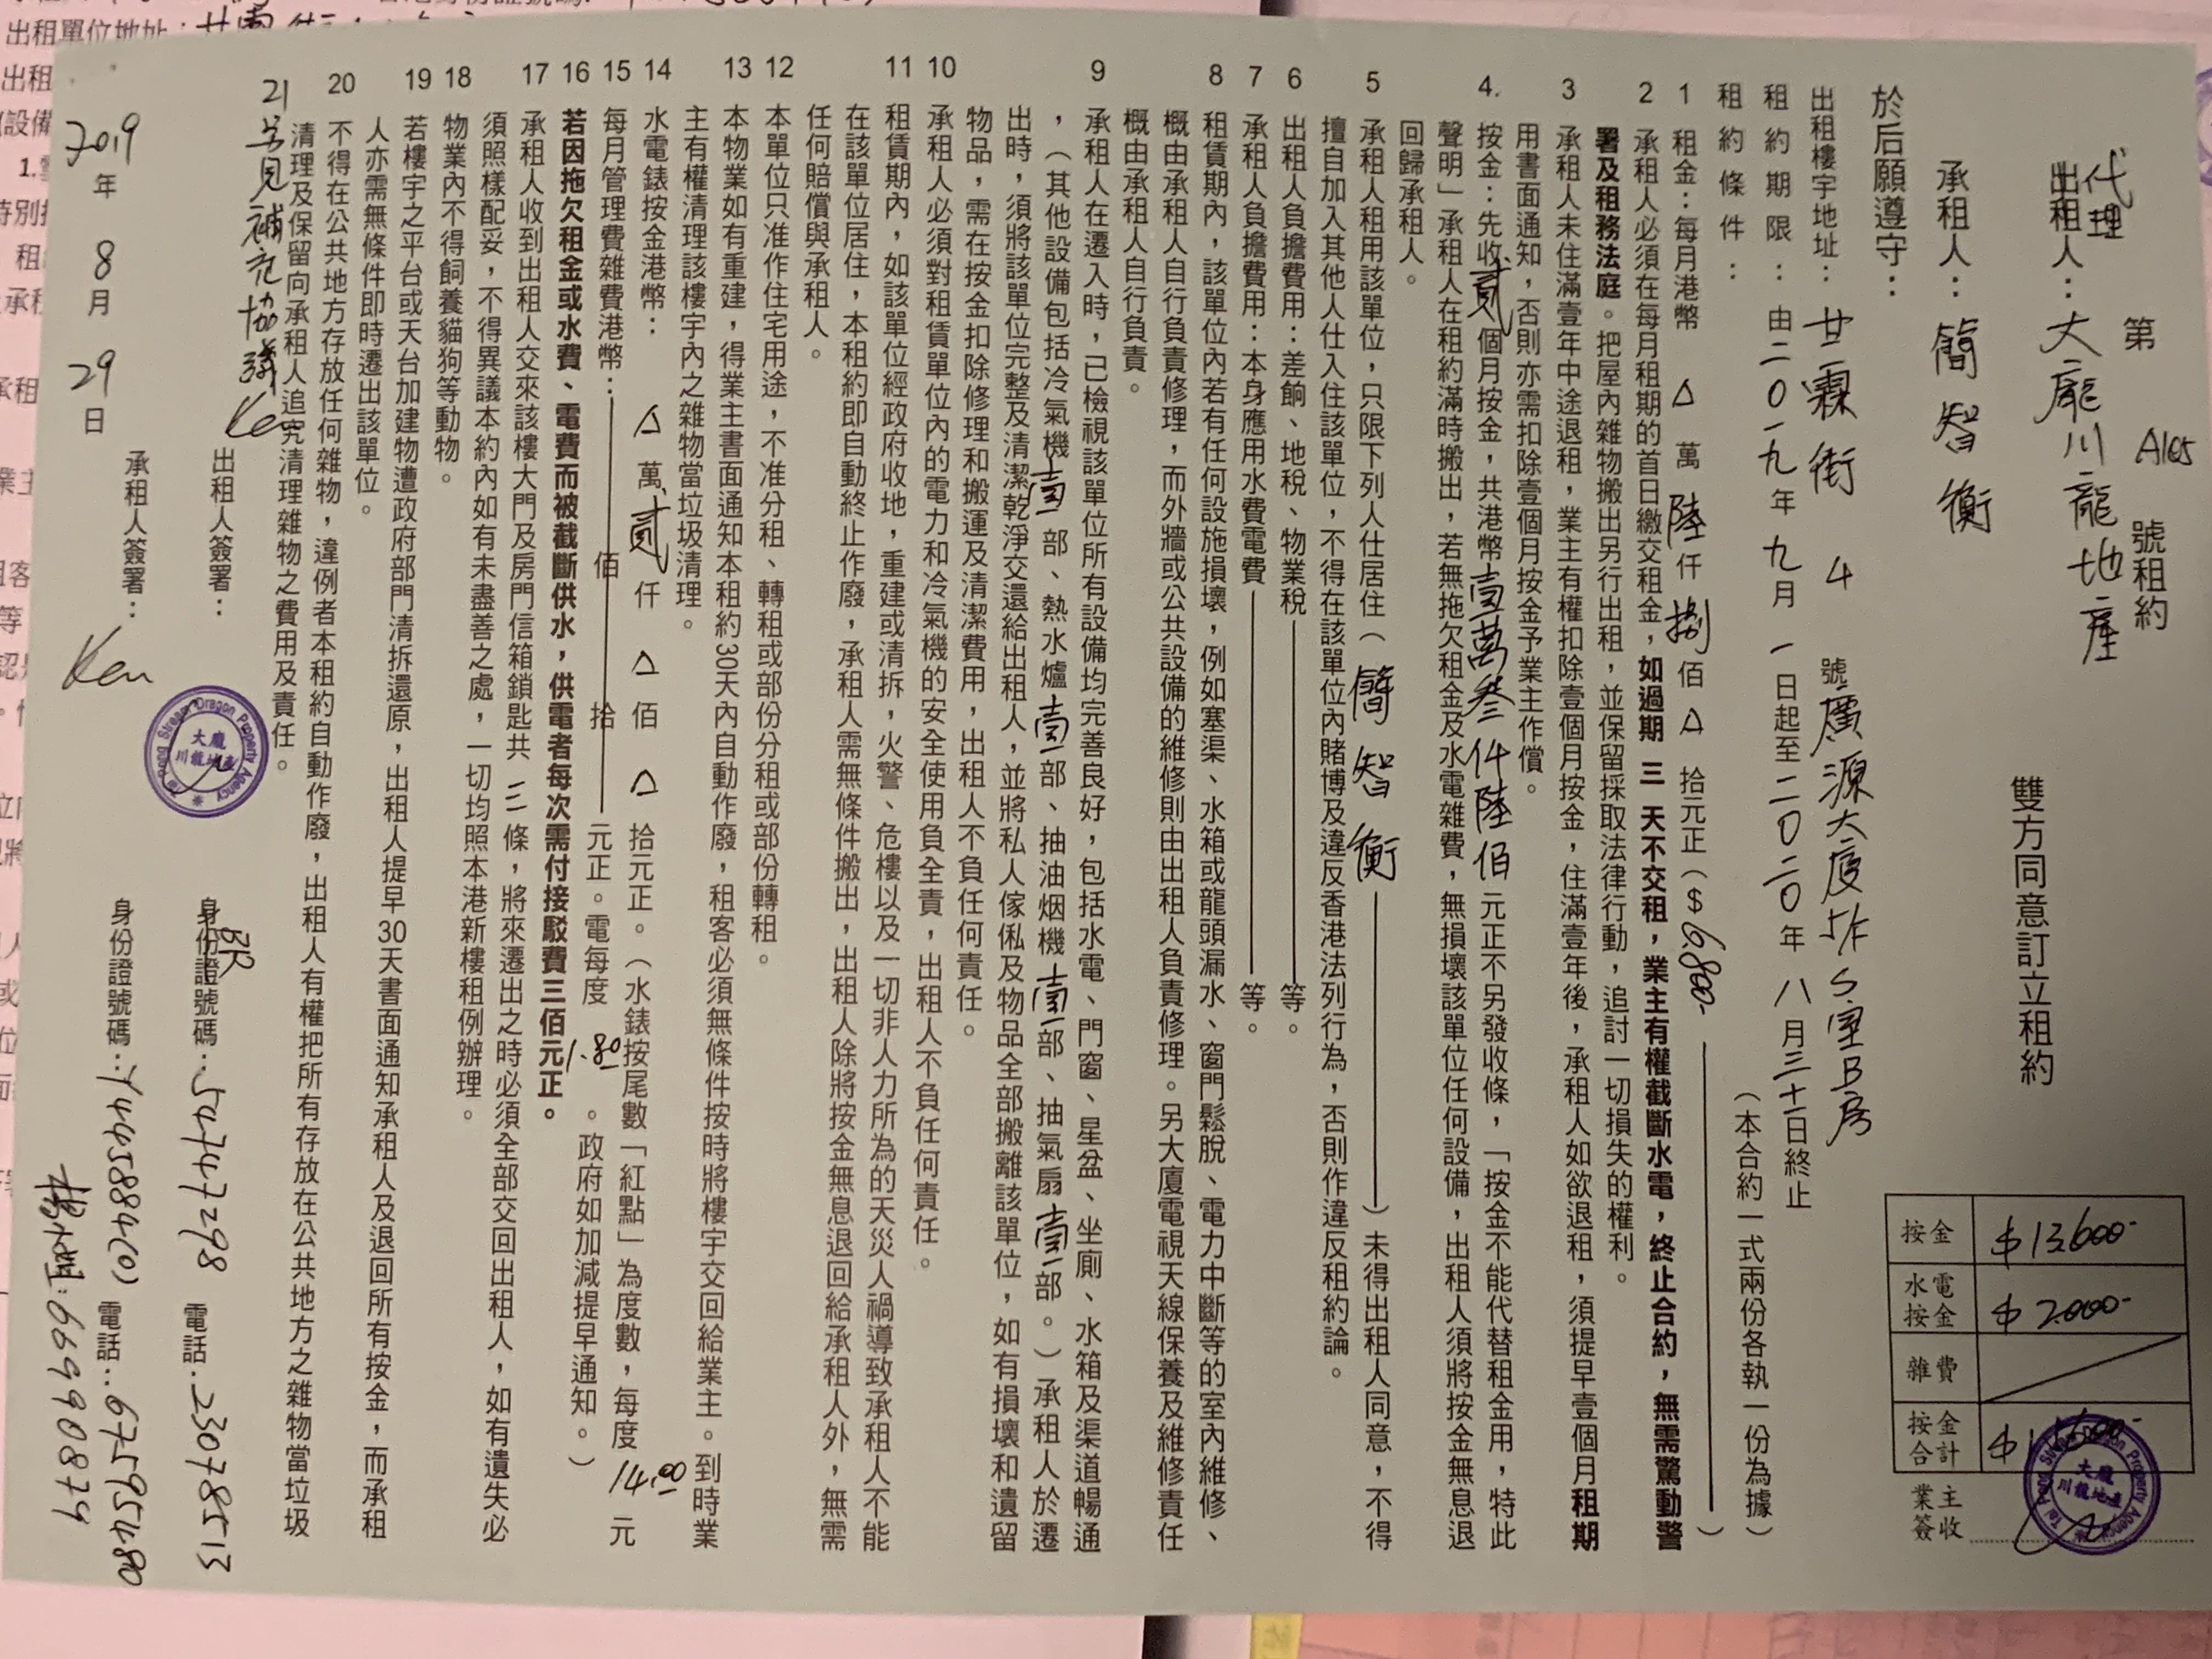 第 A165 號租約
代理
出租人：大龐川龍地產
雙方同意訂立租約
承租人：簡智衡
於后願遵守：
出租樓宇地址：廿霖街 4 號廣源大廈 5/F S室B房
租約期限：由二〇一九年九月一日起至二〇二〇年八月三十一日終止
租約條件：
（本合約一式兩份各執一份為據）
1 租金：每月港幣 △ 萬 陸 仟 捌 佰 △ 拾元正（$ 6,800- ）
2 承租人必須在每月租期的首日繳交租金，如過期 三 天不交租，業主有權截斷水電，終止合約，無需驚動警
署及租務法庭。把屋內雜物搬出另行出租，並保留採取法律行動，追討一切損失的權利。
3 承租人未住滿壹年中途退租，業主有權扣除壹個月按金，住滿壹年後，承租人如欲退租，須提早壹個月租期
用書面通知，否則亦需扣除壹個月按金予業主作償。
4. 按金：先收貳個月按金，共港幣壹萬叁仟陸佰 元正不另發收條，「按金不能代替租金用，特此
聲明」承租人在租約滿時搬出，若無拖欠租金及水電雜費，無損壞該單位任何設備，出租人須將按金無息退
回歸承租人。
5 承租人租用該單位，只限下列人仕居住（ 簡智衡 ）未得出租人同意，不得
擅自加入其他人仕入住該單位，不得在該單位內賭博及違反香港法列行為，否則作違反租約論。
6 出租人負擔費用：差餉、地稅、物業稅 等。
7 承租人負擔費用：本身應用水費電費 等。
8 租賃期內，該單位內若有任何設施損壞，例如塞渠、水箱或龍頭漏水、窗門鬆脫、電力中斷等的室內維修、
概由承租人自行負責修理，而外牆或公共設備的維修則由出租人負責修理。另大廈電視天線保養及維修責任
概由承租人自行負責。
9 承租人在遷入時，已檢視該單位所有設備均完善良好，包括水電、門窗、星盆、坐廁、水箱及渠道暢通
，（其他設備包括冷氣機壹部、熱水爐壹部、抽油烟機壹部、抽氣扇壹部。）承租人於遷
出時，須將該單位完整及清潔乾淨交還給出租人，並將私人傢俬及物品全部搬離該單位，如有損壞和遺留
物品，需在按金扣除修理和搬運及清潔費用，出租人不負任何責任。
10 承租人必須對租賃單位內的電力和冷氣機的安全使用負全責，出租人不負任何責任。
11 租賃期內，如該單位經政府收地，重建或清拆，火警、危樓以及一切非人力所為的天災人禍導致承租人不能
在該單位居住，本租約即自動終止作廢，承租人需無條件搬出，出租人除將按金無息退回給承租人外，無需
任何賠償與承租人。
12 本單位只准作住宅用途，不准分租、轉租或部份分租或部份轉租。
13 本物業如有重建，得業主書面通知本租約30天內自動作廢，租客必須無條件按時將樓宇交回給業主。到時業
主有權清理該樓宇內之雜物當垃圾清理。
14 水電錶按金港幣： △ 萬 貳 仟 △ 佰 △ 拾元正。（水錶按尾數「紅點」為度數，每度 14.00 元
15 每月管理費雜費港幣： 佰 拾 元正。電每度 1.80 。政府如加減提早通知。）
16 若因拖欠租金或水費、電費而被截斷供水，供電者每次需付接駁費三佰元正。
17 承租人收到出租人交來該樓大門及房門信箱鎖匙共 三 條，將來遷出之時必須全部交回出租人，如有遺失必
須照樣配妥，不得異議本約內如有未盡善之處，一切均照本港新樓租例辦理。
18 物業內不得飼養貓狗等動物。
19 若樓宇之平台或天台加建物遭政府部門清拆還原，出租人提早30天書面通知承租人及退回所有按金，而承租
人亦需無條件即時遷出該單位。
20 不得在公共地方存放任何雜物，違例者本租約自動作廢，出租人有權把所有存放在公共地方之雜物當垃圾
清理及保留向承租人追究清理雜物之費用及責任。
21 另見補充協議 Ken
出租人簽署： BR 身份證號碼：54747298 電話：23078513
承租人簽署：Ken 身份證號碼：Y445884(0) 電話：67595480
2019 年 8 月 29 日
: 66990879
按金 $ 13,600-
水電按金 $ 2,000-
雜費
按金合計
業主簽收
Tai Pong Stream Dragon Property Agency
大龐
川龍地產